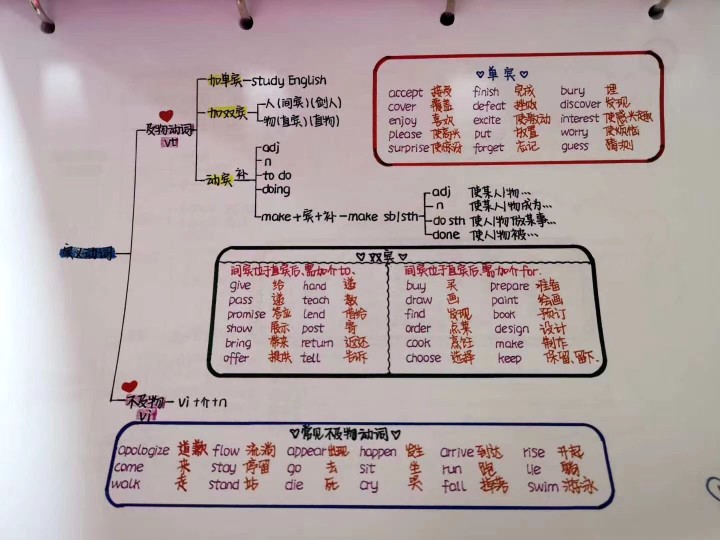 实义动词
及物动词
vt
加单宾—study English
加双宾
人(间宾)(间人)
物(直宾)(直物)
动宾补
adj
n
to do
doing
make+宾+补—make sb/sth
adj 使某人/物…
n 使某人/物成为…
do sth 使人/物做某事…
done 使人/物被…
♡单宾♡
accept 接受 finish 完成 bury 埋
cover 覆盖 defeat 挫败 discover 发现
enjoy 喜欢 excite 使激动 interest 使感兴趣
please 使高兴 put 放置 worry 使烦恼
surprise 使惊讶 forget 忘记 guess 猜测
♡双宾♡
间宾位于直宾后,需加介to.
give 给 hand 递
pass 递 teach 教
promise 答应 lend 借给
show 展示 post 寄
bring 带来 return 返还
offer 提供 tell 告诉
间宾位于直宾后,需加介for.
buy 买 prepare 准备
draw 画 paint 绘画
find 发现 book 预订
order 点菜 design 设计
cook 烹饪 make 制作
choose 选择 keep 保留、留下.
不及物
vi
vi+介+n
♡常见不及物动词♡
apologize 道歉 flow 流淌 appear 出现 happen 发生 arrive 到达 rise 升起
come 来 stay 停留 go 去 sit 坐 run 跑 lie 躺
walk 走 stand 站 die 死 cry 哭 fall 摔落 swim 游泳